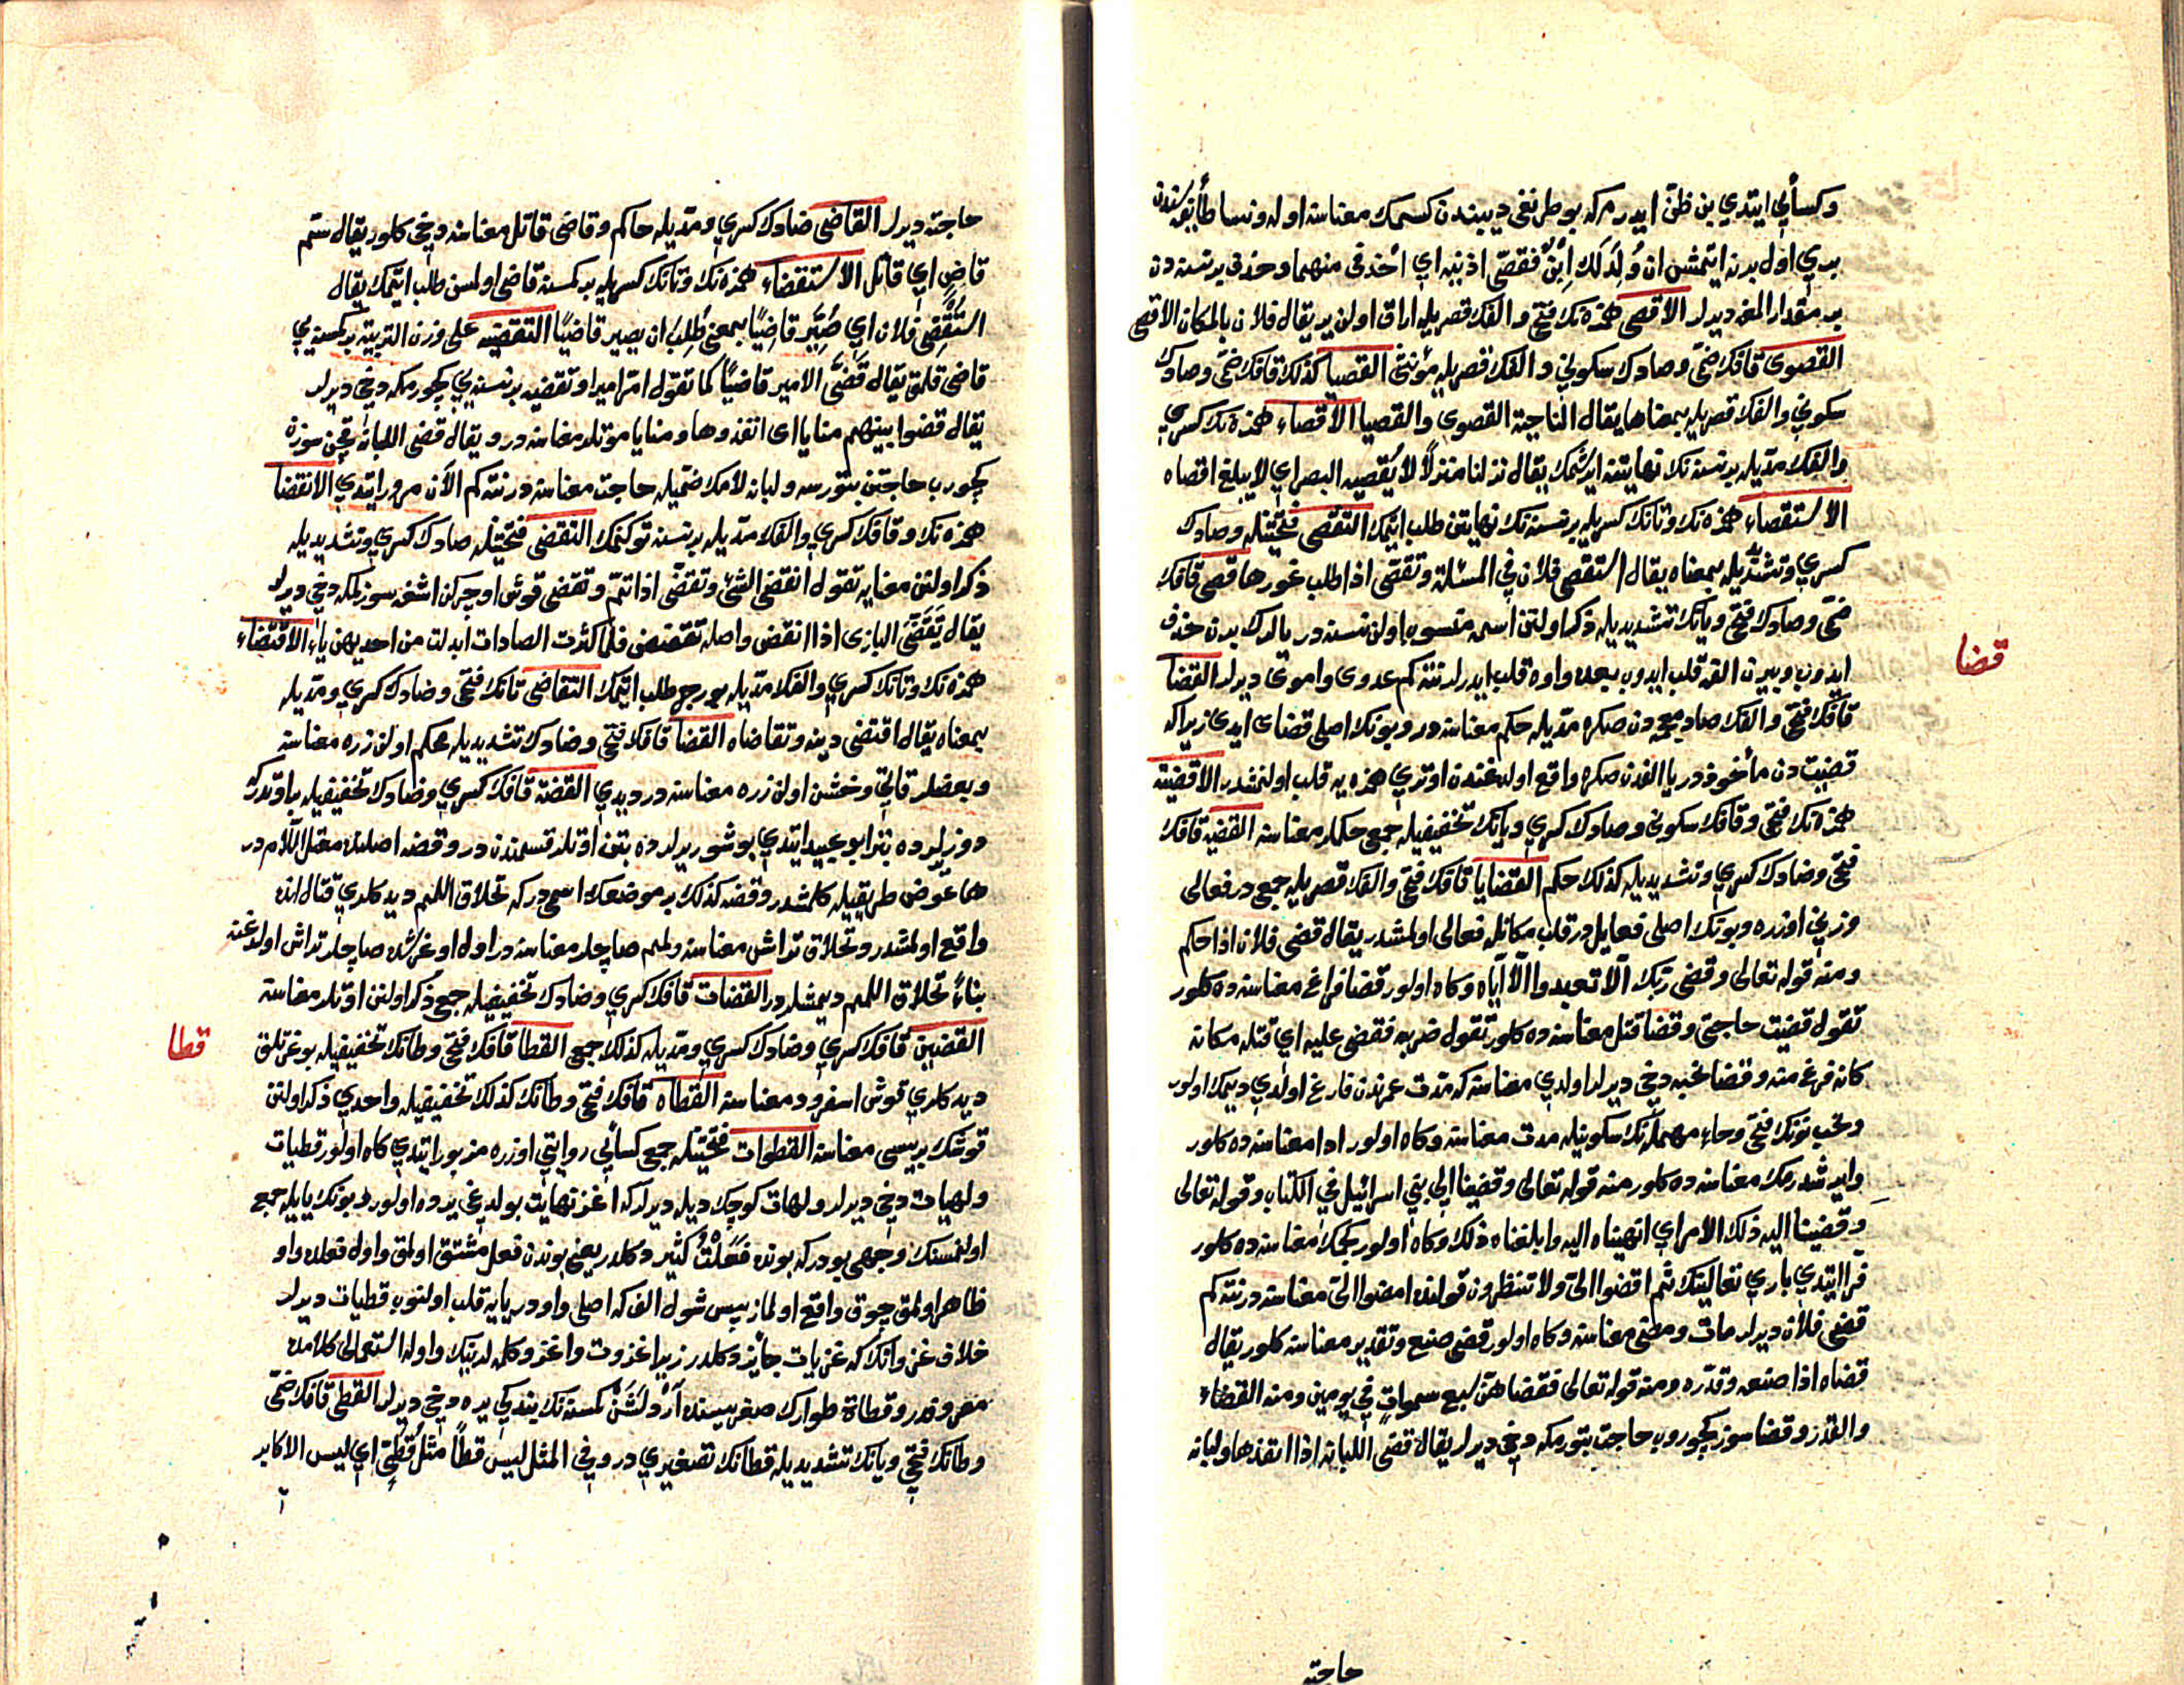 وكسائي ايتدي بن ظن ايدرمكه بو طرنغى ديبندن كسمك معناسنه اوله ونسا طائفه سندن
بري اول برنه ايتمشى ان وُلِدَ لَكِ اِبنٌ فقصّى اذنيه اي احذفى منهما وحذف بر نسنه دن
بر مقدار المغه ديرلر الاقصى همزه نك فتحى والفك قصريله اراق اولن ير يقال فلان بالمكان الاقصى
القصوى قافك ضمى وصادك سكوني والفك قصريله مؤنثى القصيا كذلك قافك ضمى وصادك
سكوني والفك قصريله بمعناها يقال الناحية القصوى والقصيا الاقصاء همزه نك كسري
والفك مديله بر نسنه نك نهايتنه ايرشمك يقال نزلنا منزلاً لا يُقصيه البصر اي لا يبلغ اقصاه
الاستقصاء همزه نك وتانك كسريله بر نسنه نك نهايتن طلب ايتمك التقصّى فتحتينله وصادك
كسري وتشديديله بمعناه يقال استقصى فلان في المسئلة وتقصّى اذا طلب غورها قصى قافك
ضمى وصادك فتحى ويانك تشديديله ذكر اولنن اسمه منسوب اولن نسنه در يالرك برن حذف
ايدوب وبيرن الفه قلب ايدوب بعده واوه قلب ايدرلر نته كم عدوى واموى ديرلر القضا
قافك فتحى والفك صاد معجمه دن صكره مديله حكم معناسنه در وبونك اصلى قضاى ايدى زيرا كه
قضيت دن مأخوذدر يا الفدن صكره واقع اولدغندن اوتري همزه يه قلب اولنمشدر الاقضية
همزه نك فتحى وقافك سكوني وضادك كسري ويانك تخفيفيله جمعى حكملر معناسنه القضية قافك
فتحى وضادك كسري وتشديديله كذلك حكم القضايا قافك فتحى والفك قصريله جمعيدر فعالى
وزني اوزره وبونك اصلى فعايل در قلب مكانله فعالى اولمشدر يقال قضى فلان اذا حكم
ومنه قوله تعالى وقضى ربك الّا تعبدوا الّا اياه وكاه اولور قضا فراغ معناسنه ده كلور
تقول قضيت حاجتى وقضا قتل معناسنه ده كلور تقول ضربه فقضى عليه اي قتله مكانه
كانه فرغ منه وقضا نحبه دخى ديرلر اولدي معناسنه كه مدت عمرندن فارغ اولدي ديمك اولور
ونحب نونك فتحى وحاء مهمله نك سكونيله مدت معناسنه وكاه اولور ادا معناسنه ده كلور
وايرشدرمك معناسنه ده كلور منه قوله تعالى وقضينا الى بني اسرائيل في الكتاب وقوله تعالى
وقضينا اليه ذلك الامر اي انهيناه اليه وابلغناه ذلك وكاه اولور كچمك معناسنه ده كلور
فرّا ايتدي باري تعالينك ثم اقضوا اليّ ولا تنظرون قولنده امضوا اليّ معناسنه در نته كم
قضى فلان ديرلر مات ومضى معناسنه وكاه اولور قضى صنع وتقدير معناسنه كلور يقال
قضاه اذا صنعه وقدّره ومنه قوله تعالى فقضاهنّ سبع سموات في يومين ومنه القضاء
والقدر وقضا سوز كچوروب حاجت بتورمكه دخى ديرلر يقال قضى اللبانة اذا انفذها ولبانه
حاجته
قضا
حاجته ديرلر القاضى ضادك كسري ومديله حاكم وقاضى قاتل معناسنه دخى كلور يقال سمّ
قاضٍ اي قاتل الاستقضاء همزه نك وتانك كسريله بر كمسنه قاضى اولمسن طلب ايتمك يقال
استُقضِى فلان اي صُيِّر قاضياً بمعنى طُلِبَ ان يصير قاضياً التقضيه على وزن التربية بر كمسنه يي
قاضى قلمق يقال قَضَّى الامير قاضياً كما تقول امّر اميرا وتقضيه بر نسنه يي كچورمكه دخى ديرلر
يقال قضوا بينهم منايا اى انفذوها ومنايا موتلر معناسنه در ويقال قضى اللبانة قچن سوزه
كچورب حاجتن بتورسه ولبانه لامك ضميله حاجت معناسنه در نته كم الآن مرور ايتدي الانقضا
همزه نك وقافك كسري والفك مديله بر نسنه توكنمك التقضى فتحتينله صادك كسري وتشديديله
ذكر اولنن معنايه تقول انقضى الشئ وتقضّى اذا تمّ وتقضى قوش اوچركن اشغه سوزلمكه دخى ديرلر
يقال تَقَضَّى البازى اذا انقض واصله تقضض فلما كثرت الضادات ابدلت من احديهن ياء الاقتضاء
همزه نك وتانك كسري والفك مديله بورج طلب ايتمك التقاضى تانك فتحى وضادك كسري ومديله
بمعناه يقال اقتضى دينه وتقاضاه القضا قافك فتحى وضادك تشديديله محكم اولن زره معناسنه
وبعضلر قاتى وخشن اولن زره معناسنه در ديدي القضة قافك كسري وضادك تخفيفيله براوتدركه
دوزيرلرده بتر ابو عبيد ايتدي بو شوريرلرده بتن اوتلر قسمندندر وقضه اصلنده معتل اللام در
ها عوض طريقيله كلمشدر وقضه كذلك بر موضعك اسميدركه تحلاق اللمم ديدكلري قتال انده
واقع اولمشدر وتحلاق تراش معناسنه ولمم صاچلر معناسنه در اول اوغرشده صاچلر تراش اولدغنه
بناءً تحلاق اللمم ديمشلردر القضات قافك كسري وضادك تخفيفيله جمع ذكر اولنن اوتلر معناسنه
القضين قافك كسري وضادك كسري ومديله كذلك جمع القطا قافك فتحى وطانك تخفيفيله بوغرتلق
ديدكلري قوش اسفرود معناسنه القطاة قافك فتحى وطانك كذلك تخفيفيله واحدي ذكر اولنن
قوشك بريسى معناسنه القطوات فتحتينله جمع كسائي روايتى اوزره مزبور ايتدي كاه اولور قطيات
ولهيات دخى ديرلر ولهات كوچك ديله ديرلركه اغز نهايت بولدغى يرده اولور بونك يايله جمع
اولنمسنك وجهى بودركه بونده فَعَلْتُ كثير دكلدر يعنى بوندن فعل مشتق اولمق واول فعلده واو
ظاهر اولمق چوق واقع اولماز پس شول الف كه اصلى واودر يايه قلب اولنوب قطيات ديرلر
خلاف غزواتك كه غزيات جائز دكلدر زيرا غزوت واغزو كلمه لرينك واوله استعمالى كلامده
معروفدر وقطاة طوارك صغريسنده اَرْدلَشَنْ كمسنه نك بندكى يره دخى ديرلر القطى قافك ضمى
وطانك فتحى ويانك تشديديله قطانك تصغيري در وفي المثل ليس قطاً مثلُ قُطَىٍّ اي ليس الاكابر
قطا